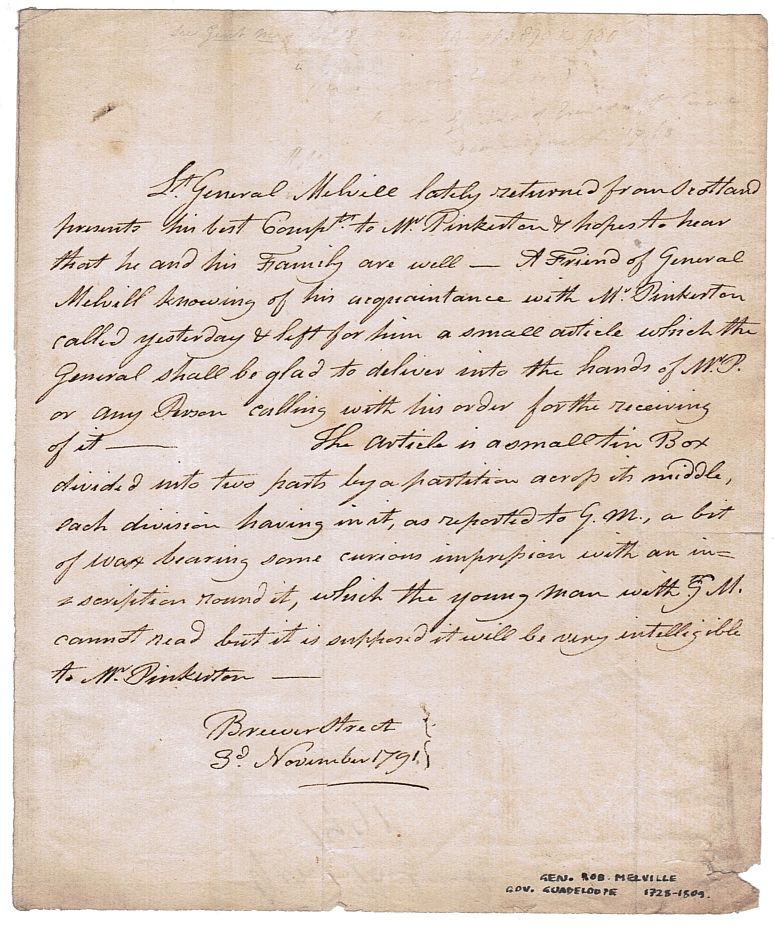 Lt. General Melvill lately returned from Scotland
presents his best Complts. to Mr. Pinkerton & hopes to hear
that he and his Family are well — A Friend of General
Melvill knowing of his acquaintance with Mr. Pinkerton
called yesterday & left for him a small article which the
General shall be glad to deliver into the hands of Mr. P.
or any Person calling with his order for the receiving
of it — The Article is a small tin Box
divided into two parts by a partition across its middle,
each division having in it, as reported to G. M., a bit
of wax bearing some curious impression with an in=
=scription round it, which the young man with G. M.
cannot read but it is supposed it will be very intelligible
to Mr. Pinkerton —
Brewer Street
3d. November 1791.
GEN. ROB. MELVILLE
GOV. GUADELOUPE 1723-1809.